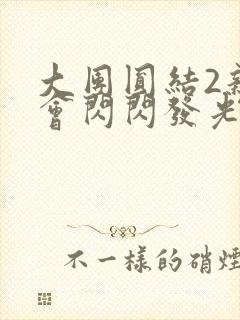 大圆圓結2新
會閃閃發光
不一樣的硝煙